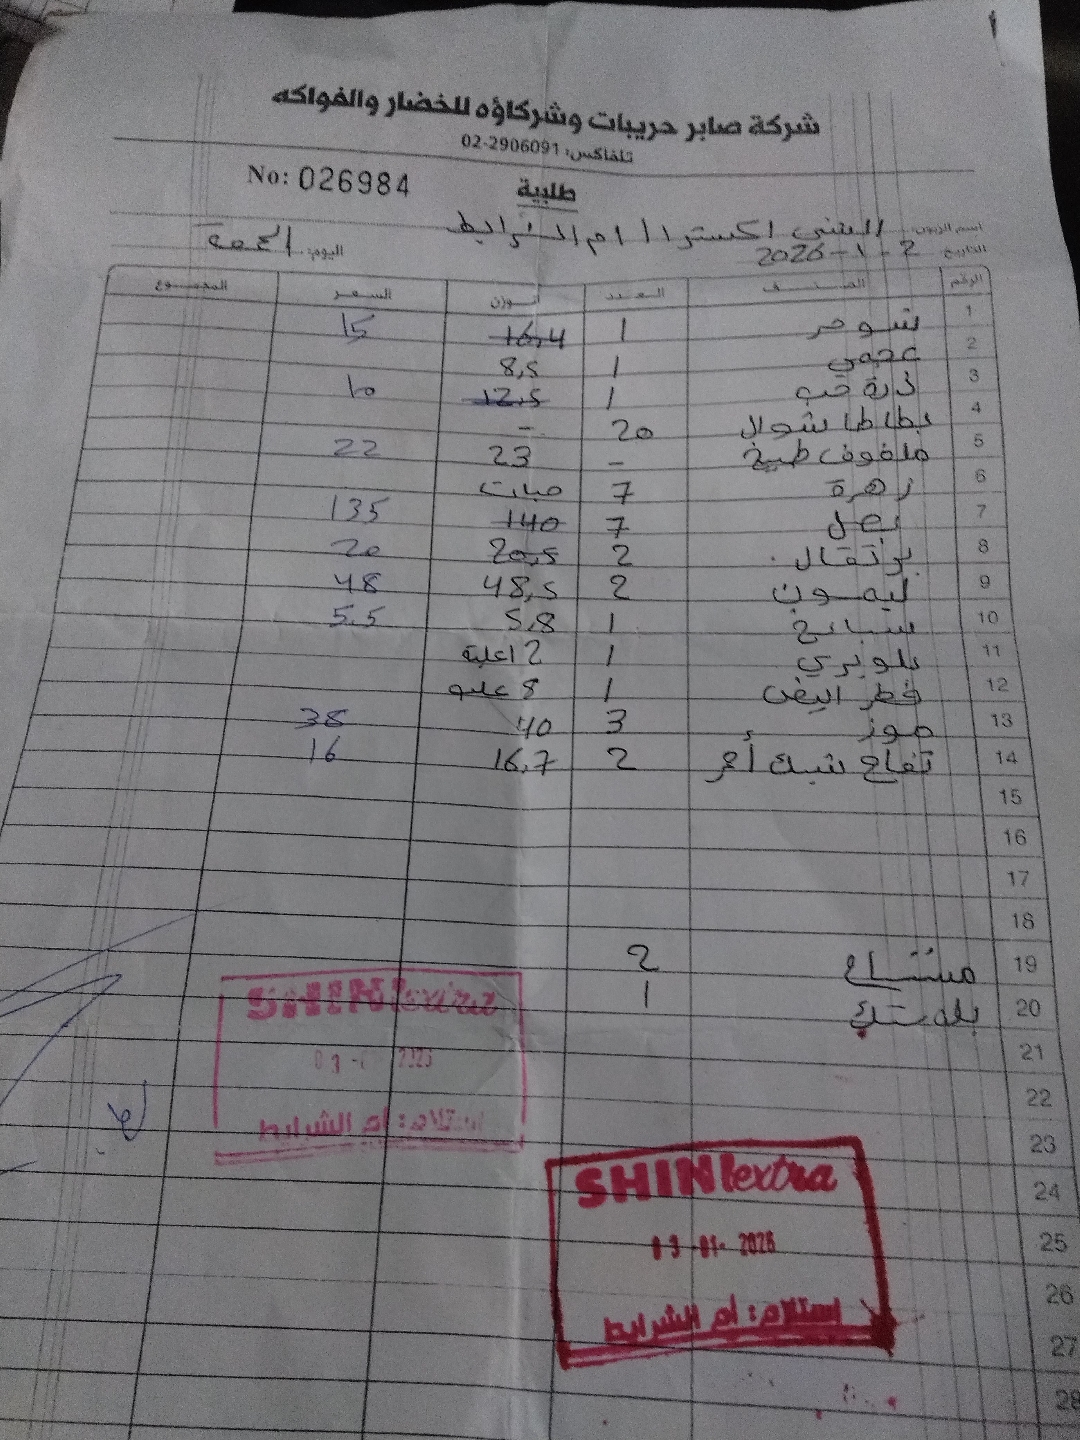 شركة صابر حريبات وشركاؤه للخضار والفواكه
تلفاكس: 02-2906091
No: 026984 طلبية
اسم الزبون: الشني اكسترا ام الشرايط
التاريخ: 2 - 1 - 2026 اليوم: الجمعة
الرقم الصنف العدد الوزن السعر المجموع
1 شومر 1 16,4 15
2 عجمي 1 8,5
3 ذرة حب 1 12,5 10
4 بطاطا شوال 20 -
5 ملفوف طبيخ - 23 22
6 زهرة 7 حبات
7 بصل 7 140 135
8 برتقال 2 20,5 20
9 ليمون 2 48,5 48
10 سبانخ 1 5,8 5.5
11 بلوبري 1 12 علبة
12 فطر ابيض 1 8 علبه
13 موز 3 40 38
14 تفاح شبك أحمر 2 16,7 16
15
16
17
18
19 مشتاح 2
20 بلاستك 1
21
22
23
24
25
26
27
28
SHINI extra
03 - 2026
استلام: أم الشرايط
SHINI extra
03 - 01 - 2026
استلام: أم الشرايط